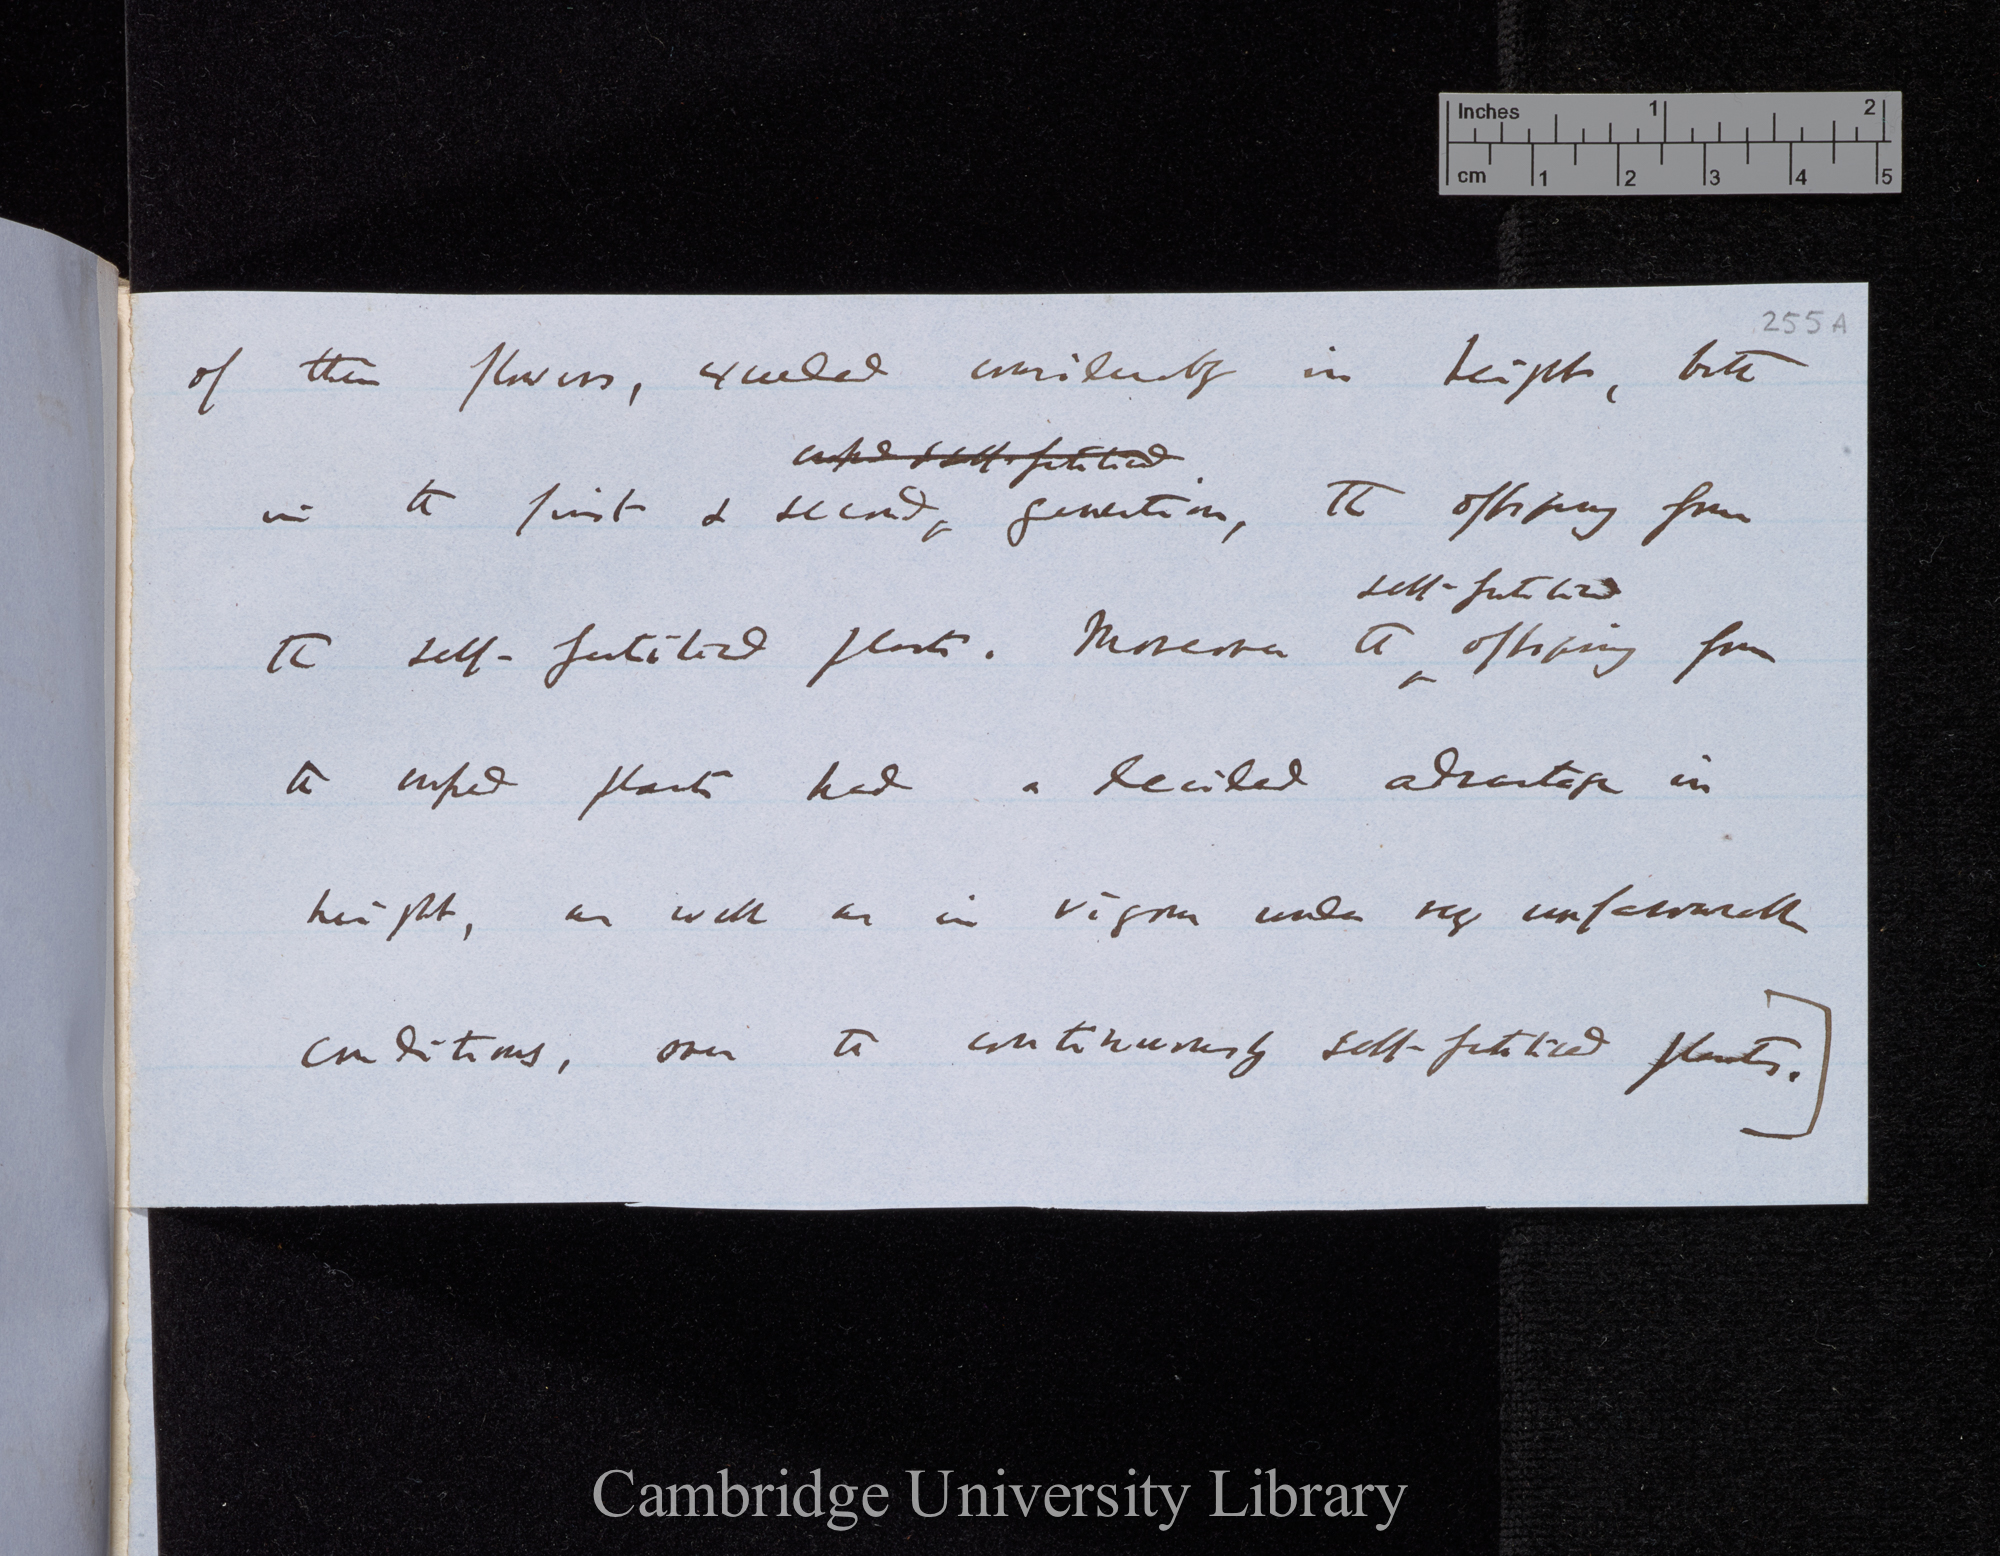 Inches 1 2
cm 1 2 3 4 5
255A
of their flowers, exceeded considerably in height, both
crossed & self-fertilised
in the first & second generation, the offspring from
self-fertilised
the self-fertilised plants. Moreover the offspring from
the crossed plants had a decided advantage in
height, as well as in vigour under very unfavourable
conditions, over the continuously self-fertilised plants.]
Cambridge University Library